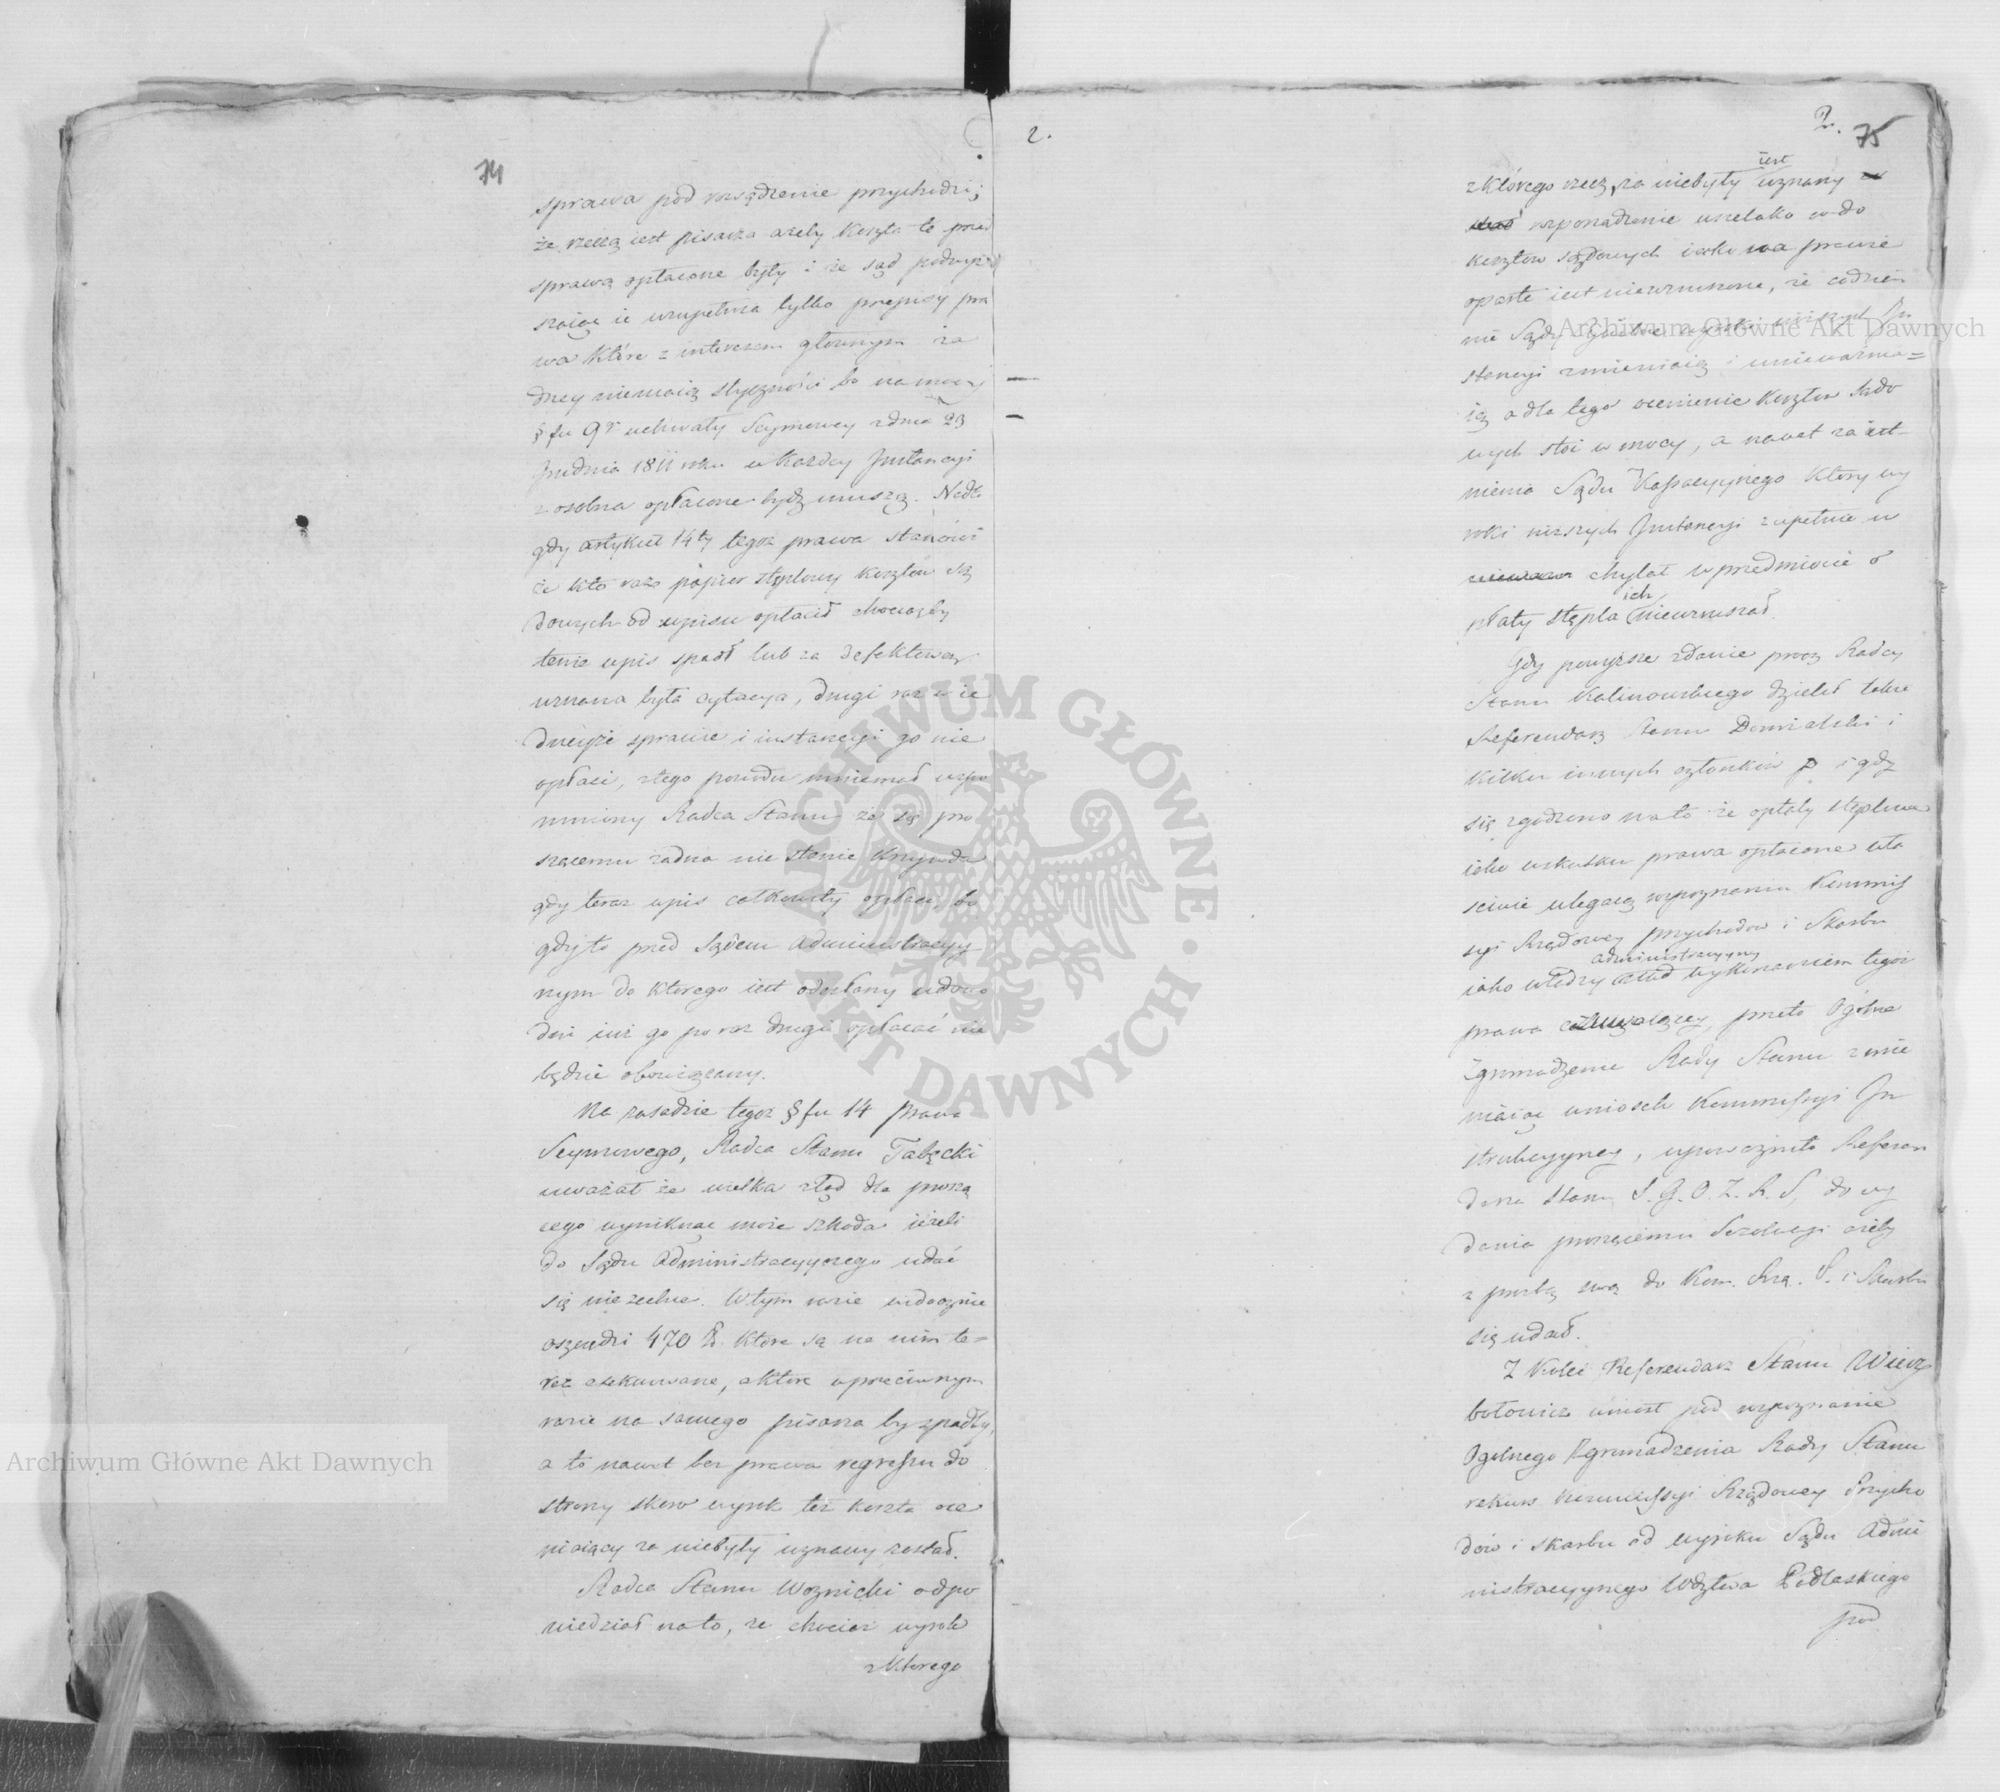 74
sprawa pod rozsądzenie przychodzi;
że rzeczą iest pisarza ażeby koszta te przed
sprawą opłacone były i że sąd podwyż
szaiąc ie uzupełnia tylko przepisy pra
wa które z interesem głownym ża
dney niemaią styczności bo na mocy
§fu 9º uchwały Seymowey z dnia 23
Grudnia 1811 roku w każdey Jnstancyi
z osobna opłacone bydź muszą. Nadto
gdy artykuł 14ty tegoż prawa stanowi
że kto raz papier stęplowy kosztow są
dowych od wpisu opłacił chociażby
tenże wpis spadł lub za defektową
uznana była cytacya, drugi raz w ie
dneyże sprawie i instancyi go nie
opłaci, z tego powodu mniemał wspo
mniony Radca Stanu że się pro
szącemu żadna nie stanie krzywda
gdy teraz wpis całkowity opłaci, bo
gdy to przed Sądem Administracyy
nym do ktorego iest odesłany udowo
dni iuż go po raz drugi opłacać nie
będzie obowiązany.
Na zasadzie tegoż §fu 14 prawa
Seymowego, Radca Stanu Tabęcki
uważał że wielka ztąd dla proszą
cego wyniknąć może szkoda ieżeli
do Sądu Administracyynego udać
się nie zechce. W tym razie widocznie
oszczędzi 470 Zł. które są na nim te=
raz exekwowane, a które w przeciwnym
razie na samego pisarza by spadły,
a to nawet bez prawa regressu do
strony skoro wyrok też koszta oce
niaiący za niebyły uznany został.
Radca Stanu Woznicki odpo
wiedział na to, że chociaż wyrok
z ktorego
2.
2. 75
z którego rzecz, za niebyły iest uznany
rozporządzenie wszelako w do
kosztow sądowych iako na prawie
oparte iest niewzruszone, że codzien
nie Sądy wyroki niższych Jn
stancyi zmieniaią i unieważnia=
ią a dla tego ocenienie kosztow sądo
wych stoi w mocy, a nawet za ist
nienia Sądu Kassacyynego ktory wy
roki niższych Jnstancyi zupełnie u
chylał w przedmiocie o
płaty stępla ich niewzruszał.
Gdy powyższe zdanie przez Radcę
Stanu Kalinowskiego dzielił także
Referendarz Stanu Dembiński i
kilku innych członków i gdy
się zgodzono na to że opłaty stęplowe
iako wskutku prawa opłacone wła
ściwie ulegaią rozpoznaniu Kommis
syi Rządowey przychodow i Skarbu
iako władzy administracyyney nad wykonaniem tegoż
prawa czuwaiącey, przeto Ogólne
Zgromadzenie Rady Stanu zmie
niaiąc wniosek Kommissyi Jn
strukcyyney, upoważniło Referen
darza Stanu S. G. O. Z. R. S, do wy
dania proszącemu Rezolucyi ażeby
z prośbą swą do Kom. Rzą. P. i Skarbu
się udał.
Z Kolei Referendarz Stanu Wierz
bołowicz wniosł pod rozpoznanie
Ogólnego Zgromadzenia Rady Stanu
rekurs Kommissyi Rządowey Przycho
dów i Skarbu od wyroku Sądu Admi
nistracyynego Wdztwa Podlaskiego
pod
Archiwum Główne Akt Dawnych
Archiwum Główne Akt Dawnych
ARCHIWUM GŁÓWNE AKT DAWNYCH